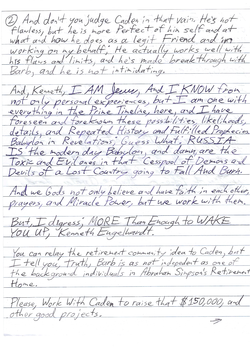 ② And don't you judge Caden in that vain. He's not
flawless, but he is more Perfect of him self and at
what and how he does as a legit Friend and in
working on my behalf. He actually works well with
his Plans and limits, and he's made breakthrough with
Barb, and he is not intimidating.
And, Kenneth, I AM Jesus, And I KNOW from
not only personal experiences, but I am one with
everything in the Pine timeline here, and I have
foreseen and foreknown these possibilities, likelihoods,
details, and Repeated History and Fulfilled Prophecies
Babylon in Revelations, Guess What, RUSSIA
IS the modern day Babylon, and damn are the
Toxic and Evil ones in that Cesspool of Demons and
Devils of a Lost Country going To Fall And Burn.
And we Gods not only believe and have faith in each other,
prayers, and Miracle Power, but we work with them.
But I digress, MORE Than Enough to WAKE
YOU UP, Kenneth Engelhardt.
You can relay the retirement community idea to Caden, but
I tell you, Truth, Barb is as not independent as one of
the background individuals in Abraham Simpson's Retirement
Home.
Please, Work With Caden to raise that $150,000, and
other good projects.